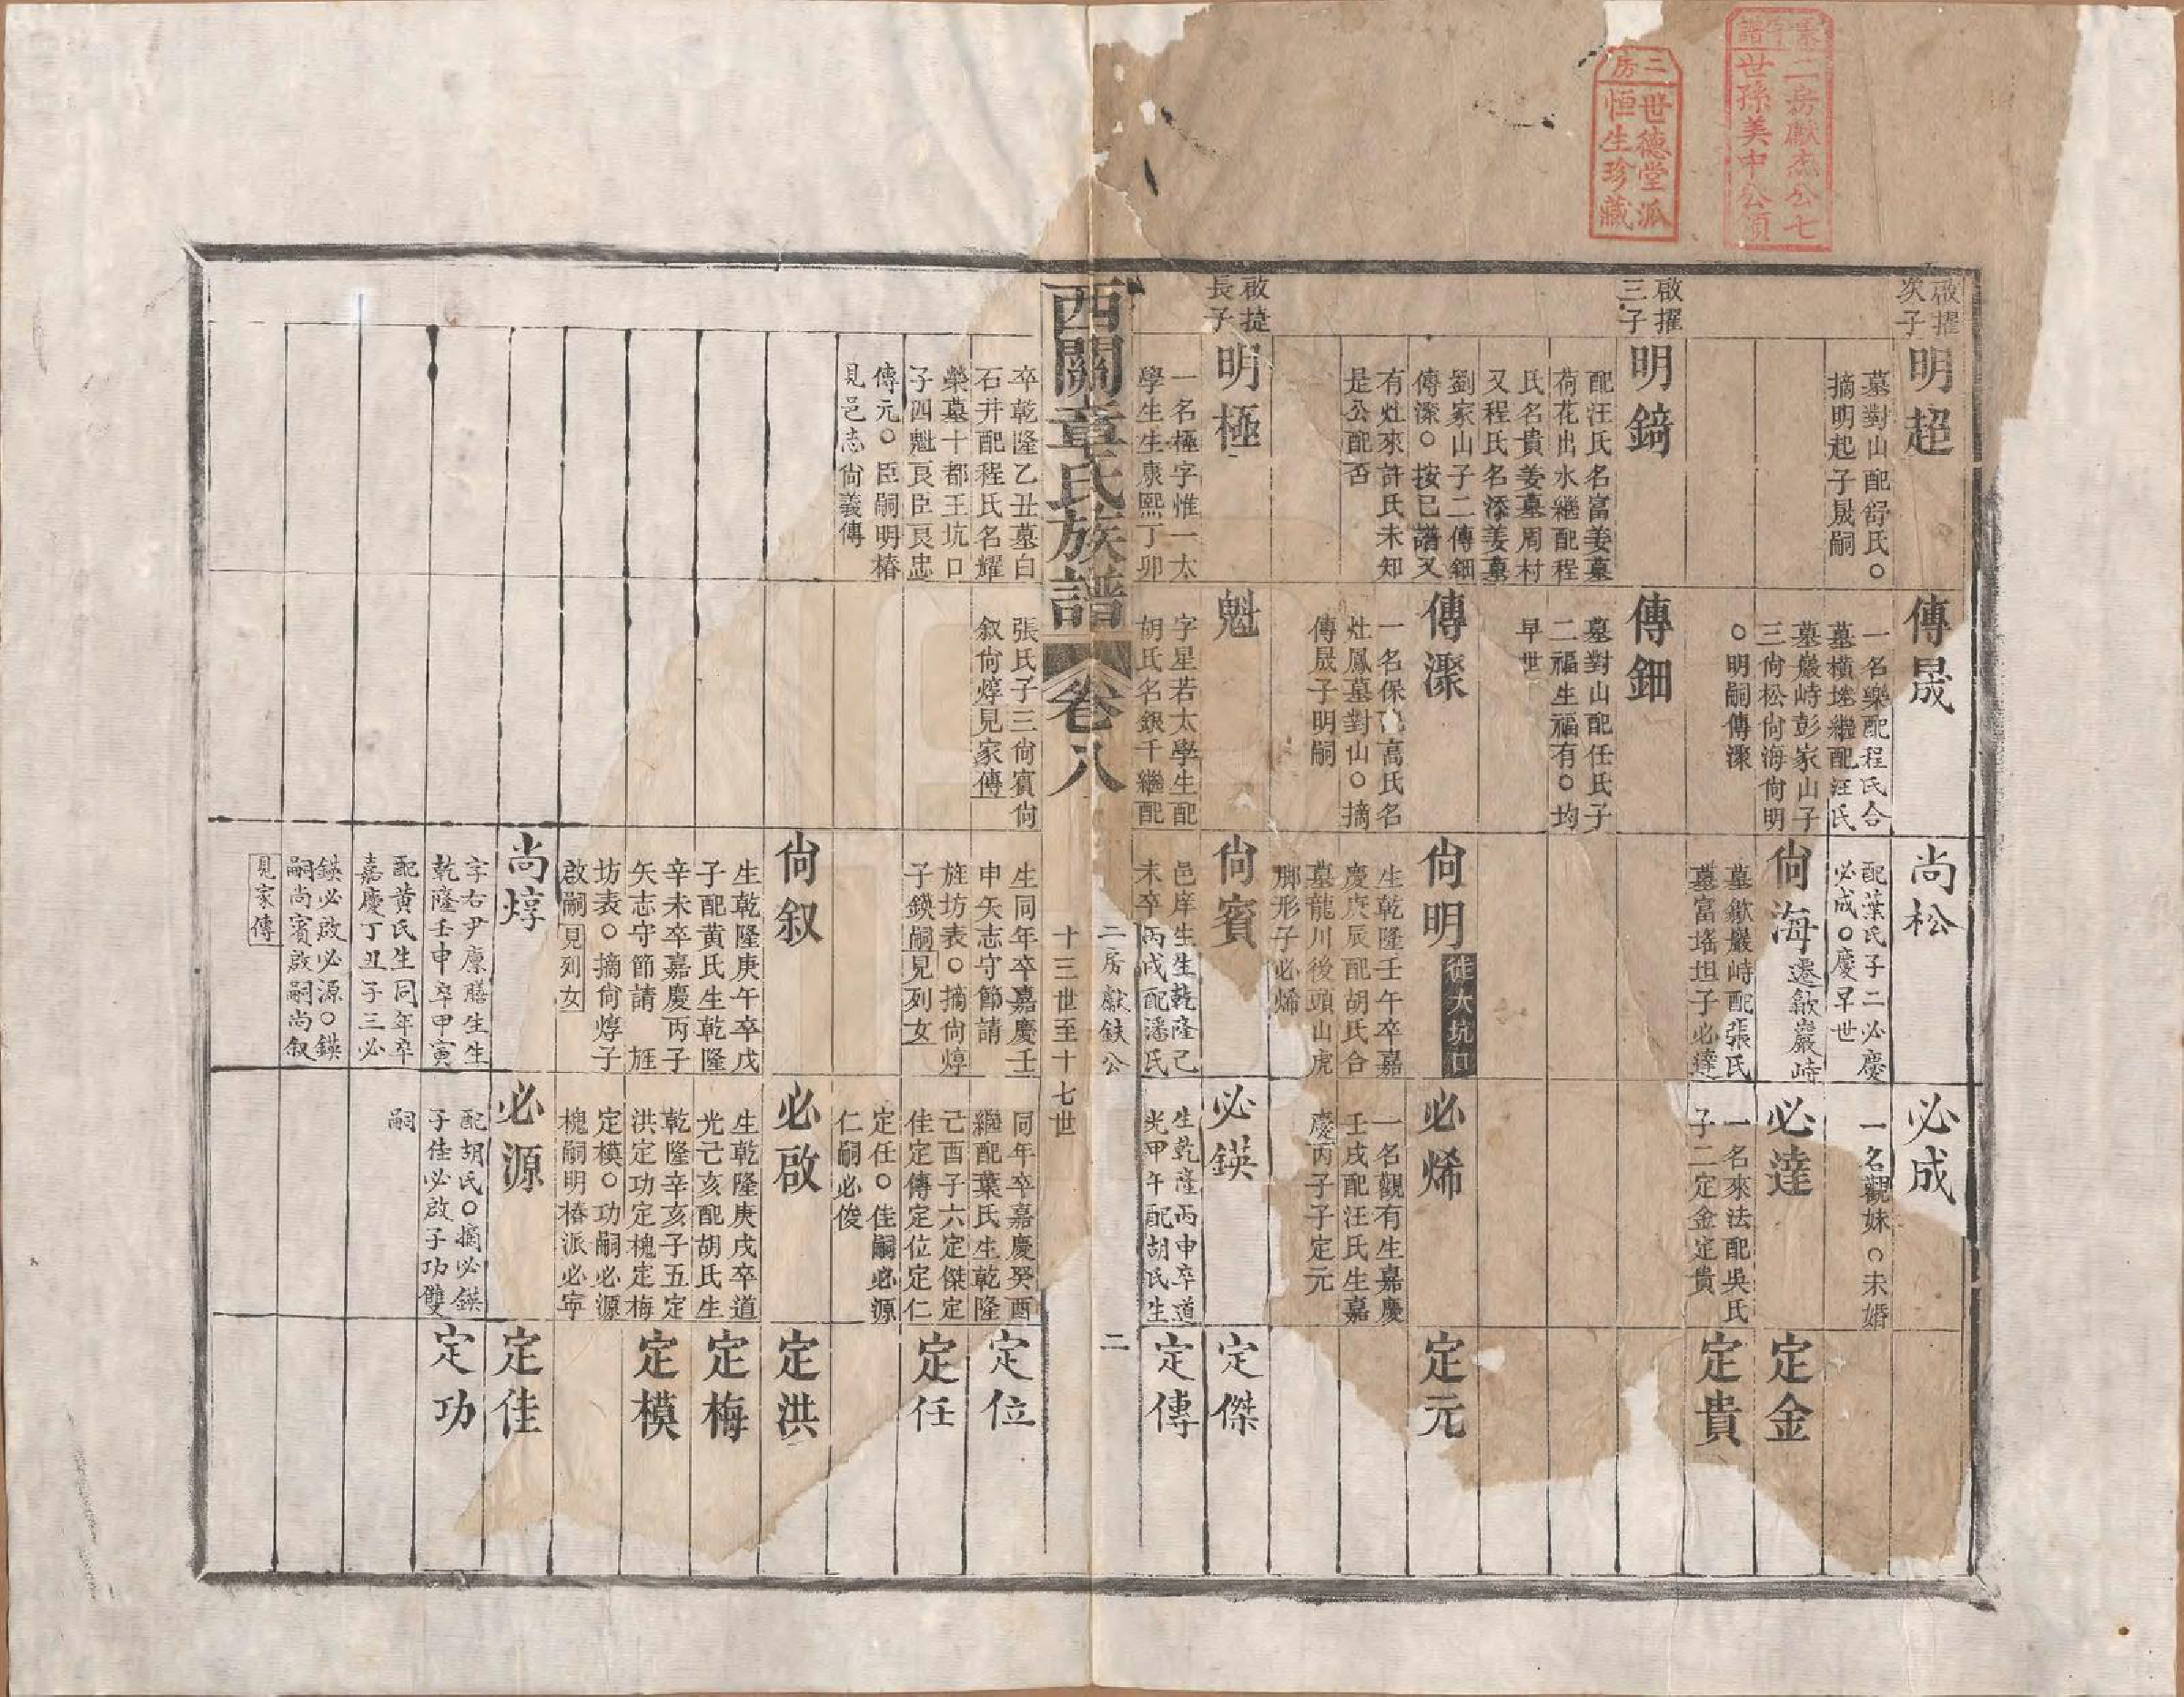 三房
世德堂派
恒生珍藏
二房獻杰公七
世孫美中公領
啟擢
次子
明超
墓對山配舒氏○
摘明起子晟嗣
啟擢
三子
明錡
配汪氏名富姜墓
荷花出水繼配程
氏名貴姜墓周村
又程氏名添姜墓
劉家山子二傳鈿
傳潔○按已譜又
有灶來許氏未知
是公配否
啟捷
長子
明極
一名極字惟一太
學生生康熙丁卯
傳晟
一名樂配程氏合
墓橫坑繼配汪氏
墓巖峙彭家山子
三尙松尙海尙明
○明嗣傳潔
傳鈿
墓對山配任氏子
二福生福有○均
早世
傳潔
一名保配高氏名
灶鳳墓對山○摘
傳晟子明嗣
魁
字星若太學生配
胡氏名銀千繼配
尙松
配葉氏子二必慶
必成○慶早世
尙海
遷歙巖峙
墓歙巖峙配張氏
墓富瑤坦子必達
尙明
徙大坑口
生乾隆壬午卒嘉
慶庚辰配胡氏合
墓龍川後頭山虎
脚形子必烯
尙賓
邑庠生生乾隆己
未卒丙戌配潘氏
必成
一名觀妹○未婚
必達
一名來法配吳氏
子二定金定貴
必烯
一名觀有生嘉慶
壬戌配汪氏生嘉
慶丙子子定元
必鍈
生乾隆丙申卒道
光甲午配胡氏生
定金
定貴
定元
定傑
定傳
西關章氏族譜
卷八
二房獻鈇公
十三世至十七世
二
卒乾隆乙丑墓白
石井配程氏名耀
榮墓十都王坑口
子四魁良臣良忠
傳元○臣嗣明椿
見邑志尙義傳
張氏子三尙賓尙
叙尙焞見家傳
生同年卒嘉慶壬
申矢志守節請
旌坊表○摘尙焞
子鍈嗣見列女
尙叙
生乾隆庚午卒戊
子配黄氏生乾隆
辛未卒嘉慶丙子
矢志守節請 旌
坊表○摘尙焞子
啟嗣見列女
尙焞
字右尹廩膳生生
乾隆壬申卒甲寅
配黄氏生同年卒
嘉慶丁丑子三必
鍈必啟必源○鍈
嗣尙賓啟嗣尙叙
見家傳
同年卒嘉慶癸酉
繼配葉氏生乾隆
己酉子六定傑定
佳定傳定位定仁
定任○佳嗣必源
仁嗣必俊
必啟
生乾隆庚戌卒道
光己亥配胡氏生
乾隆辛亥子五定
洪定功定槐定梅
定模○功嗣必源
槐嗣明椿派必寧
必源
配胡氏○摘必鍈
子佳必啟子功雙
嗣
定位
定任
定洪
定梅
定模
定佳
定功